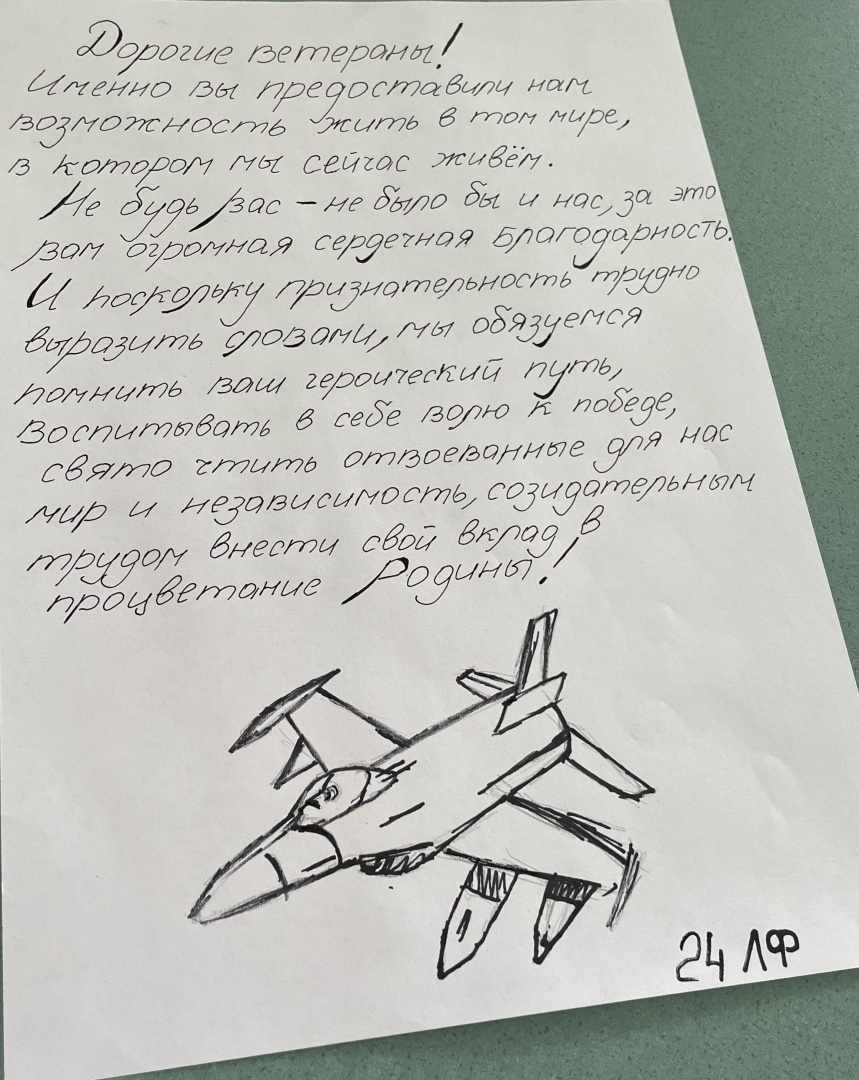 Дорогие ветераны!
Именно вы предоставили нам
возможность жить в том мире,
в котором мы сейчас живём.
Не будь вас – не было бы и нас, за это
вам огромная сердечная благодарность.
И поскольку признательность трудно
выразить словами, мы обязуемся
помнить ваш героический путь,
воспитывать в себе волю к победе,
свято чтить отвоеванные для нас
мир и независимость, созидательным
трудом внести свой вклад в
процветание Родины!
24 ЛФ